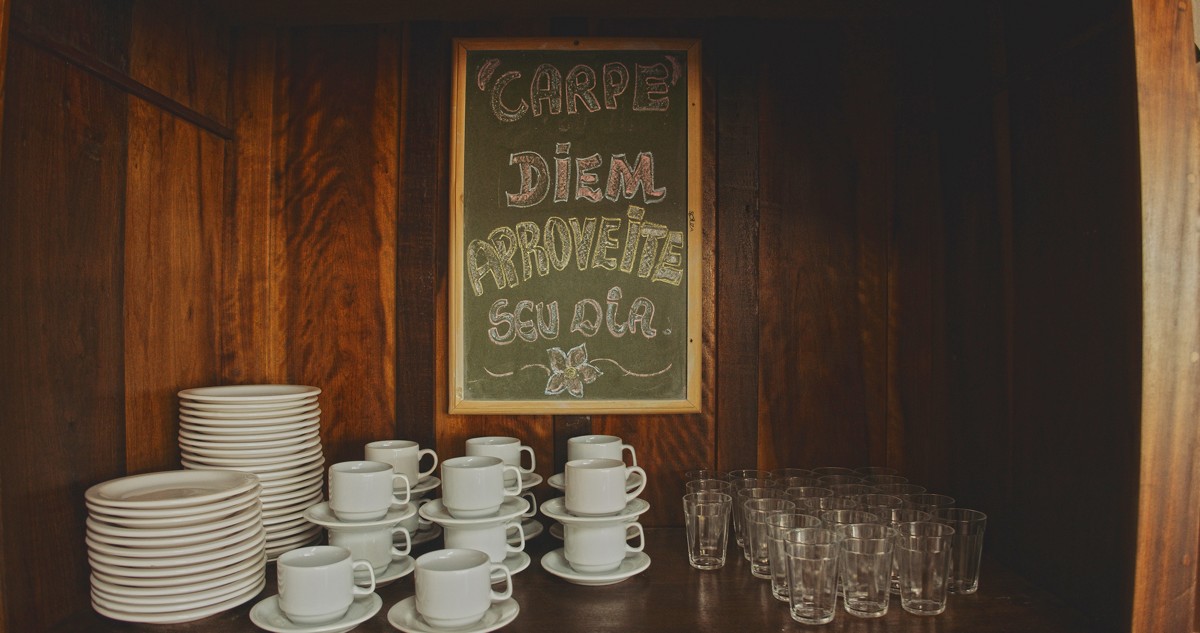 "CARPE"
DIEM
APROVEITE
SEU DIA.